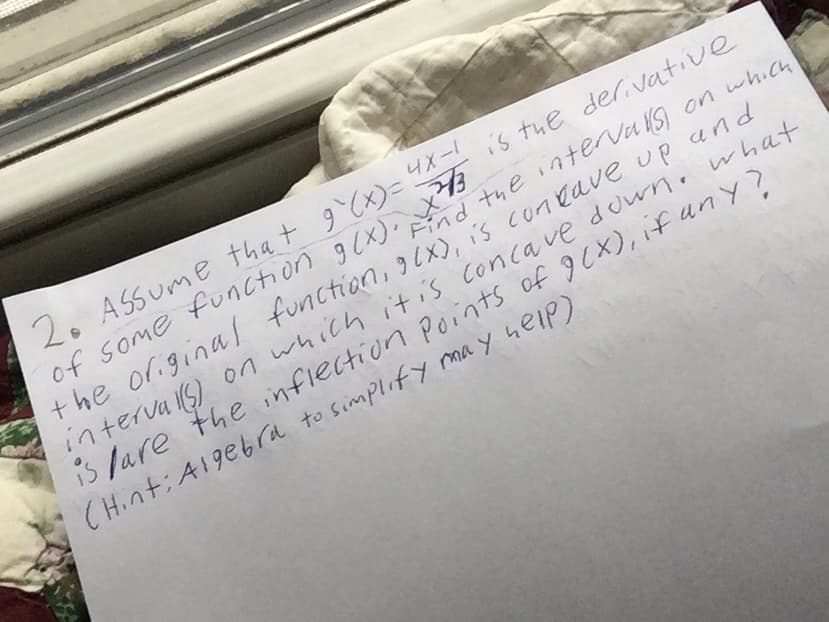 2. Assume that g`(x)= 4x-1 / x^2/3 is the derivative
of some function g(x). Find the interval(s) on which
the original function, g(x), is concave up and
interval(s) on which it is concave down. what
is/are the inflection points of g(x), if any?
(Hint: Algebra to simplify may help)